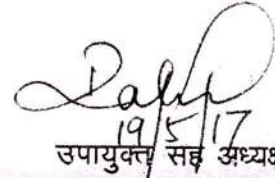 19/5/17
उपायुक्त सह अध्यक्ष